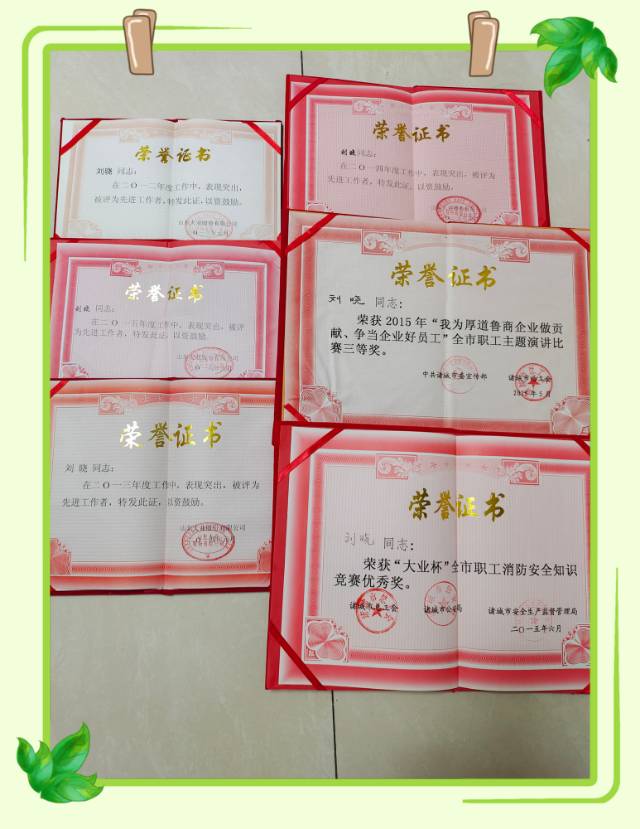 荣誉证书
刘晓 同志:
在二〇一二年度工作中,表现突出,
被评为先进工作者,特发此证,以资鼓励。
荣誉证书
刘晓 同志:
在二〇一五年度工作中,表现突出,被评
为先进工作者,特发此证,以资鼓励。
荣誉证书
刘 晓 同志:
在二〇一三年度工作中,表现突出,被评为
先进工作者,特发此证,以资鼓励。
荣誉证书
刘晓同志:
在二〇一四年度工作中,表现突出,被评为
先进工作者,特发此证,以资鼓励。
荣誉证书
刘 晓 同志:
荣获2015年“我为厚道鲁商企业做贡
献、争当企业好员工”全市职工主题演讲比
赛三等奖。
中共诸城市委宣传部 诸城市总工会
2015年5月
荣誉证书
刘晓 同志:
荣获“大业杯”全市职工消防安全知识
竞赛优秀奖。
诸城市总工会 诸城市公安局 诸城市安全生产监督管理局
二〇一五年六月